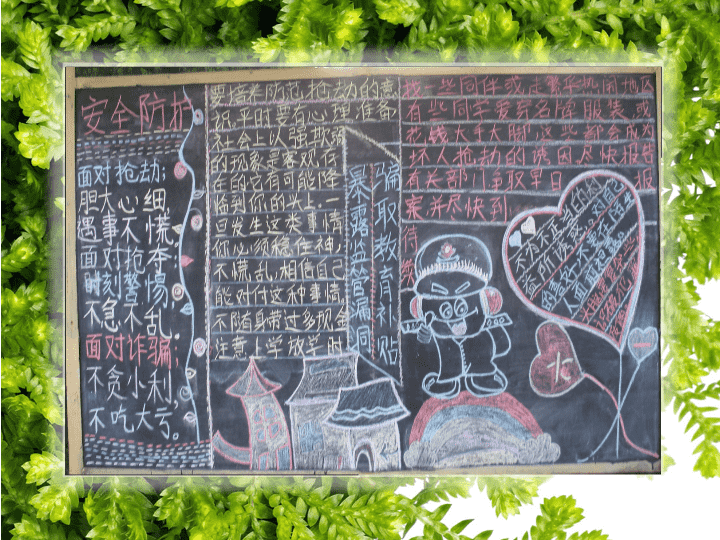 安全防护
面对抢劫;
胆大心细,
遇事不慌,
面对抢夺
时刻警惕,
不急不乱。
面对诈骗;
不贪小利,
不吃大亏。
要培养防范抢劫的意
识,平时要有心理准备
社会上以强欺弱
的现象是客观存
在的它有可能降
临到你的头上.一
旦发生这类事情
你必须稳住神,
不慌,乱,相信自己
能对付这种事情.
不随身带过多现金
注意上学放学时
骗取教育补贴
暴露监管漏洞
找一些同伴或走繁华热闹地区
有些同学爱穿名牌服装,或
花钱大手大脚,这些都会成为
坏人抢劫的诱因尽快报告
有关部门争取早日
报
案,并尽快到